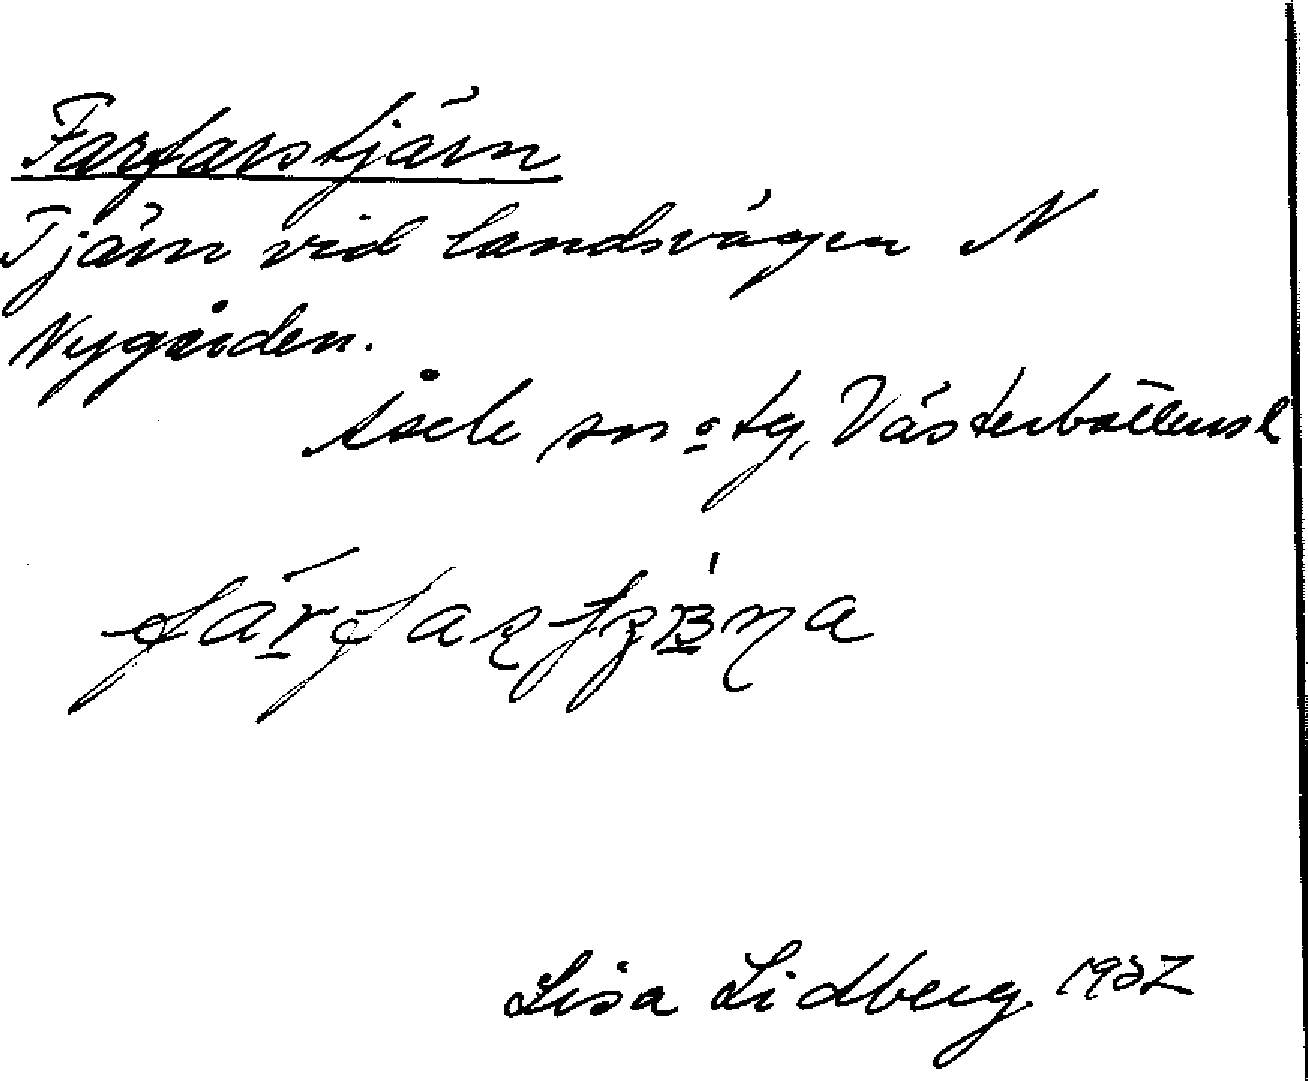 Farfarstjärn
Tjärn vid landsvägen N
Nygården.
Åsele sn o tg, Västerbottens l
Lisa Lidberg. 1937